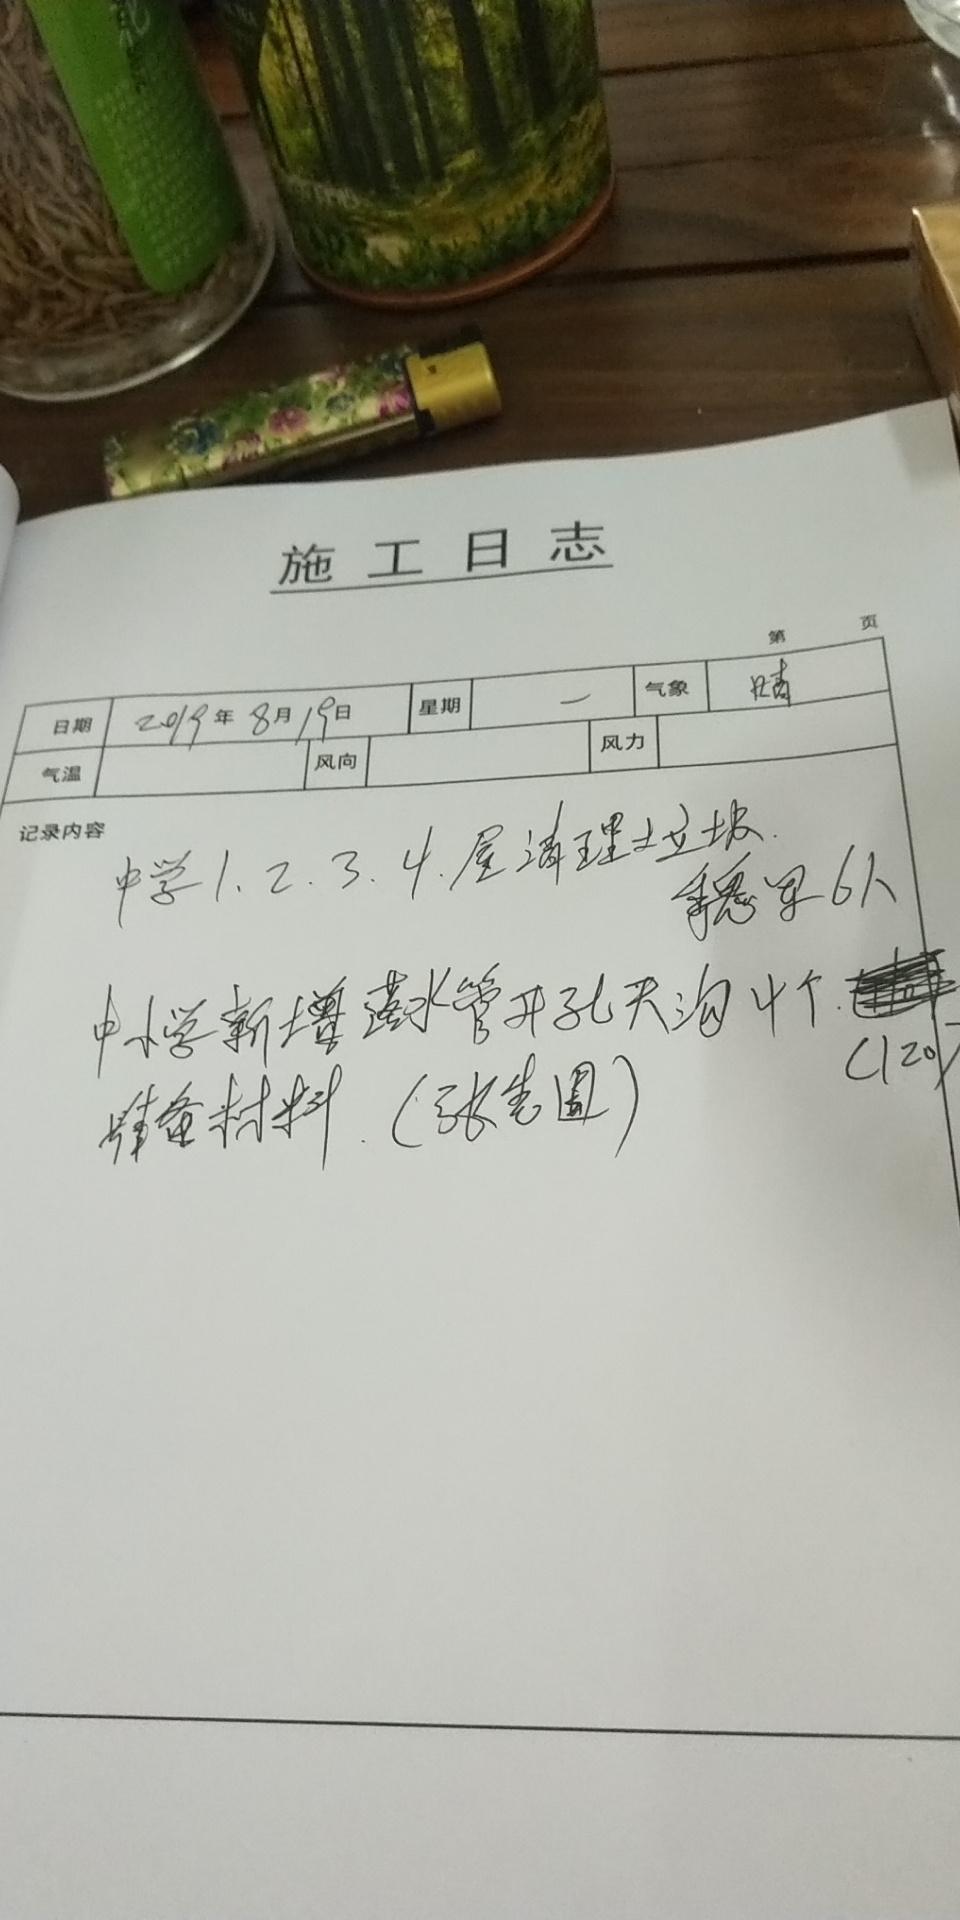 施工日志
第 页
日期 2019年8月19日 星期 一 气象 晴
气温 风向 风力
记录内容
中学1.2.3.4.层清理垃圾.
6人
中小学新增落水管开孔天沟4个.
(120)
准备材料.(张志国)